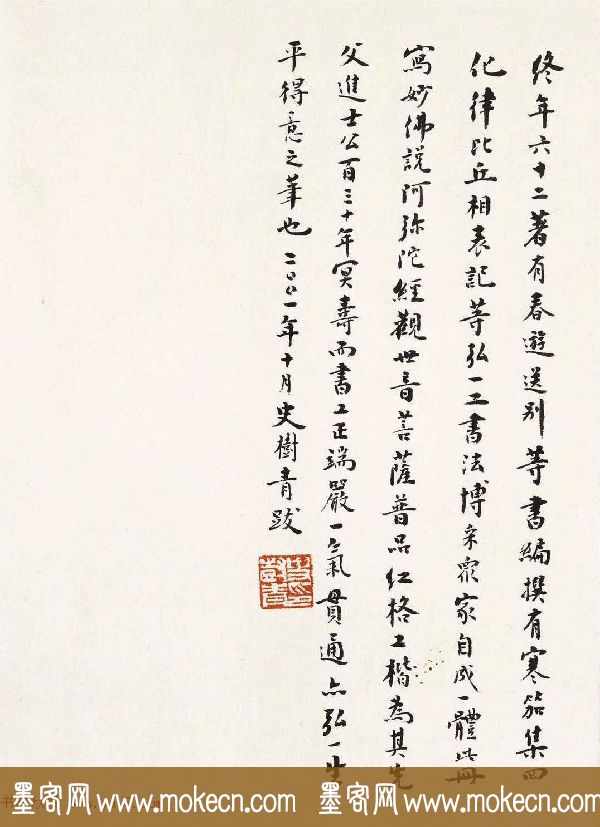 終年六十二著有春遊送别等書編撰有寒笳集四
化律比丘相表記等弘一工書法博采衆家自成一體此冊
寫妙佛説阿弥陀經觀世音菩薩普品红格工楷為其先
父進士公百三十年冥壽而書工正端嚴一氣貫通亦弘一生
平得意之筆也二〇〇一年十月史樹青跋
史樹青印
墨客网 www.mokecn.com 墨客网 www.mokecn.com